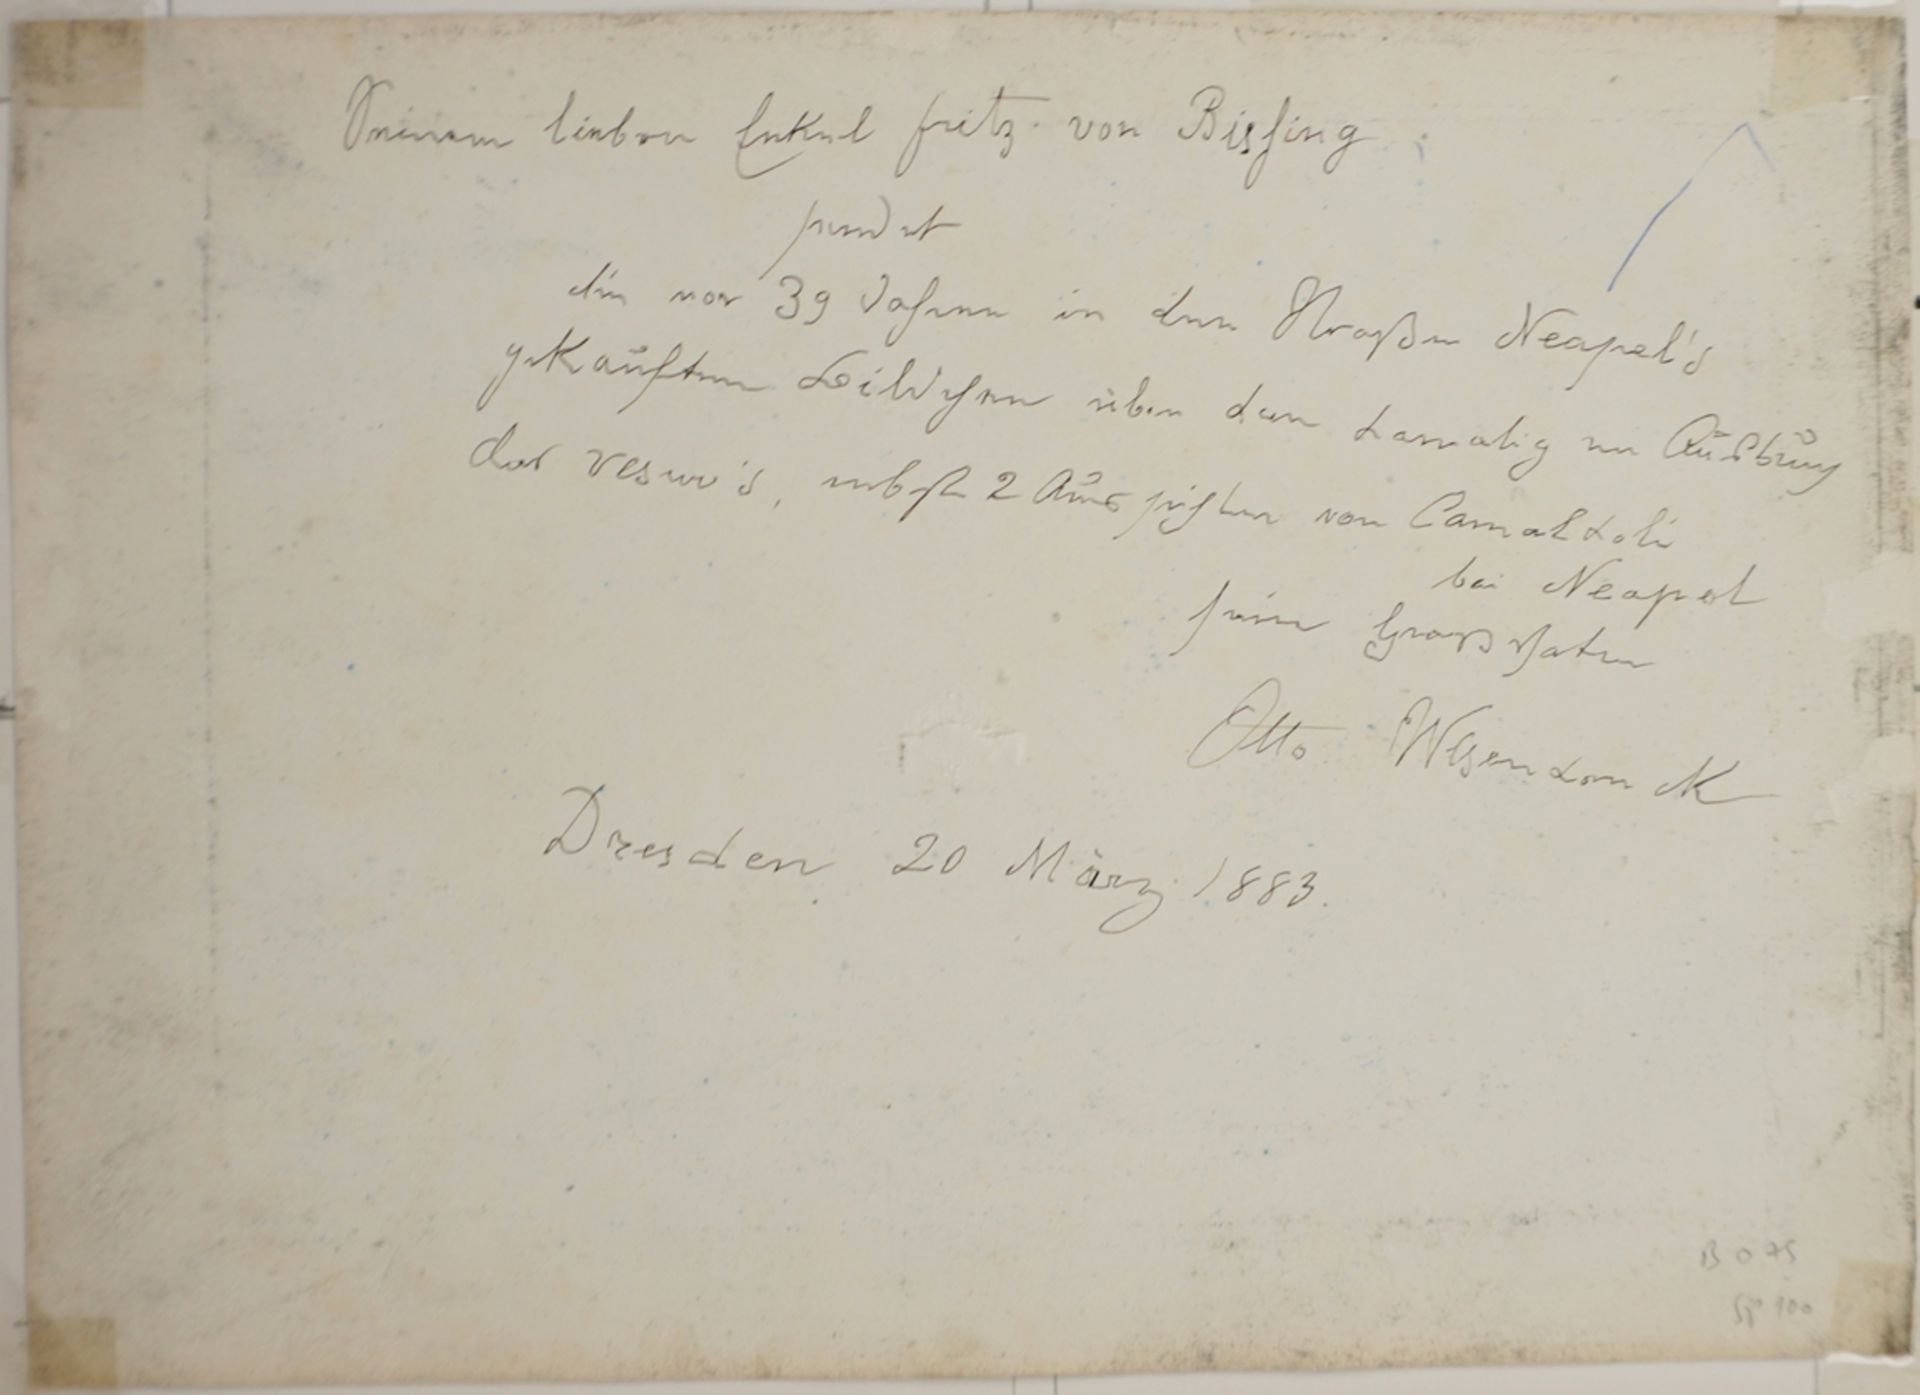 Seinem lieben Enkel Fritz von Bissing
sendet
die vor 39 Jahren in den Straßen Neapel's
gekauften Bildchen über den damaligen Ausbruch
des Vesuv's, nebst 2 Aussichten von Camaldoli
bei Neapel
sein Großvater
Otto Wesendonck
Dresden 20 März 1883.
B 075
100